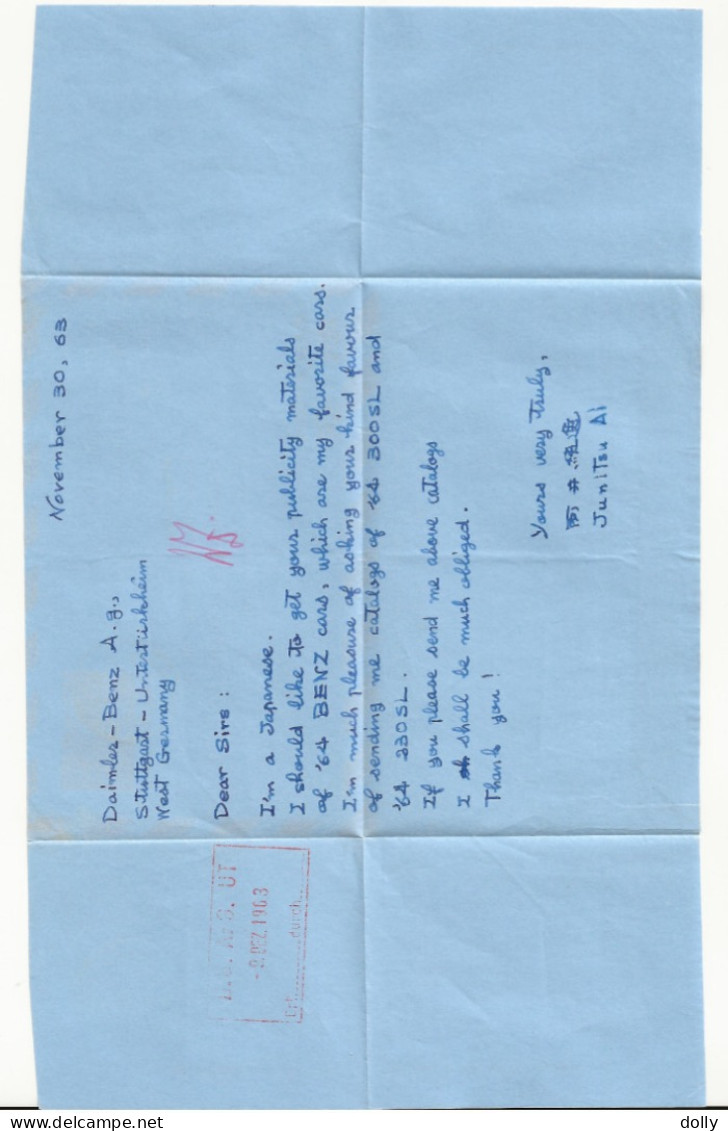 November 30, 63
Daimler-Benz A.g.,
Stuttgart-Untertürkheim
West Germany
Dear Sirs:
I'm a Japanese.
I should like to get your publicity materials
of '64 BENZ cars, which are my favorite cars.
I'm much pleasure of asking your kind favour
of sending me catalogs of '64 300SL and
'64 230SL.
If you please send me above catalogs
I shall be much obliged.
Thank you!
Yours very truly,
Junitsu Ai
A.G. UT
-9.DEZ.1963
Erl. durch
dolly